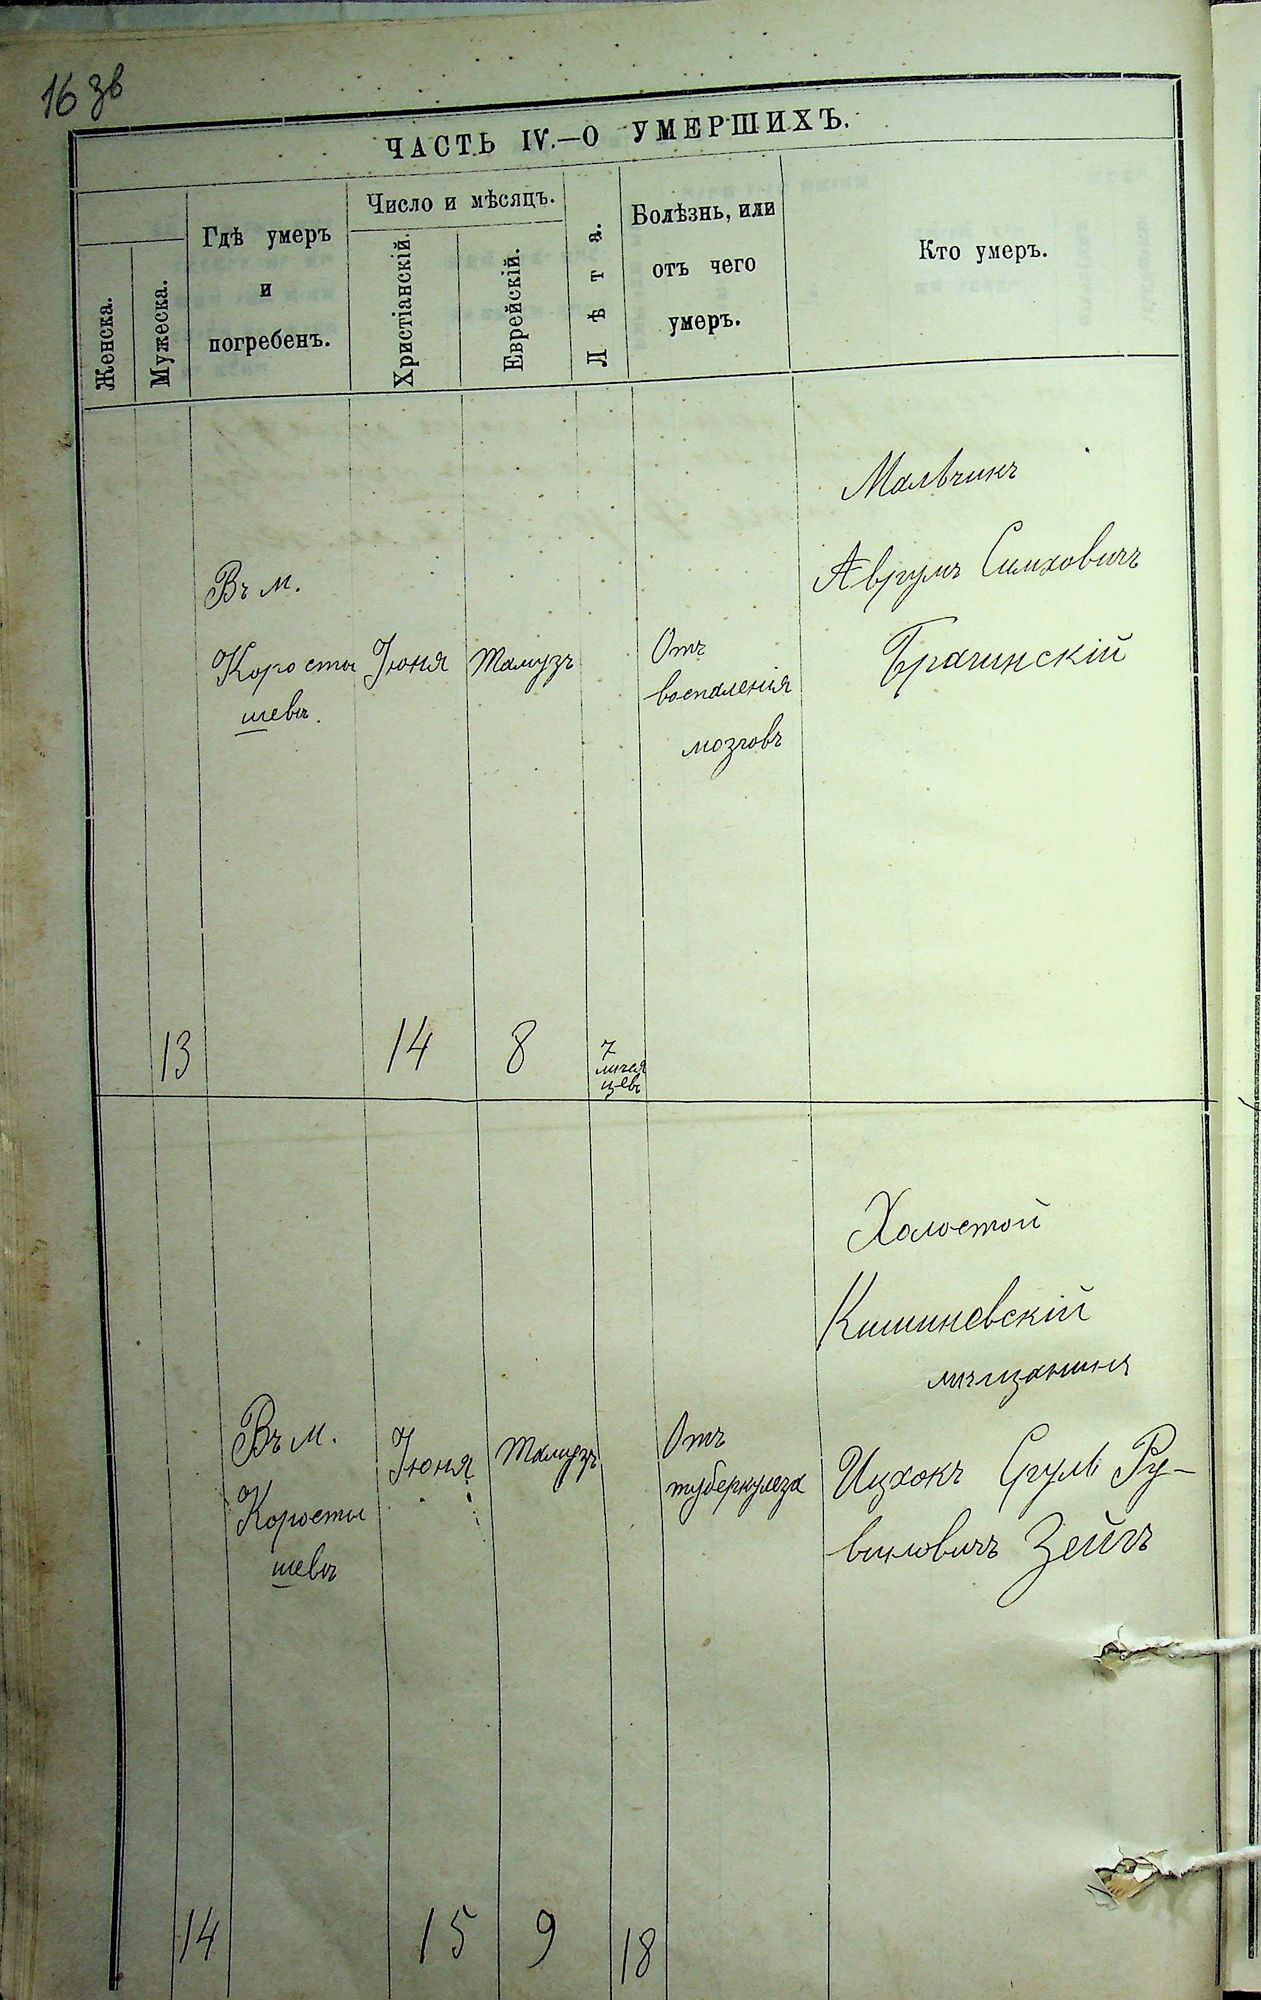 16 зв
ЧАСТЬ IV.—О УМЕРШИХЪ.
Женска.
Мужеска.
Гдѣ умеръ
и
погребенъ.
Число и мѣсяцъ.
Христіанскій.
Еврейскій.
Лѣта.
Болѣзнь, или
отъ чего
умеръ.
Кто умеръ.
Мальчикъ
Аврумъ Симховичъ
Брагинскій
Въ м.
Коросты
шевъ.
Іюня
Тамузъ
Отъ
воспаленія
мозговъ
13
14
8
7
мѣся
цевъ
Холостой
Кишиневскій
мѣщанинъ
Ицхокъ Сруль Ру-
виновичъ Зейгъ
Въ м.
Коросты
шевъ
Іюня
Тамузъ
Отъ
туберкулеза
14
15
9
18